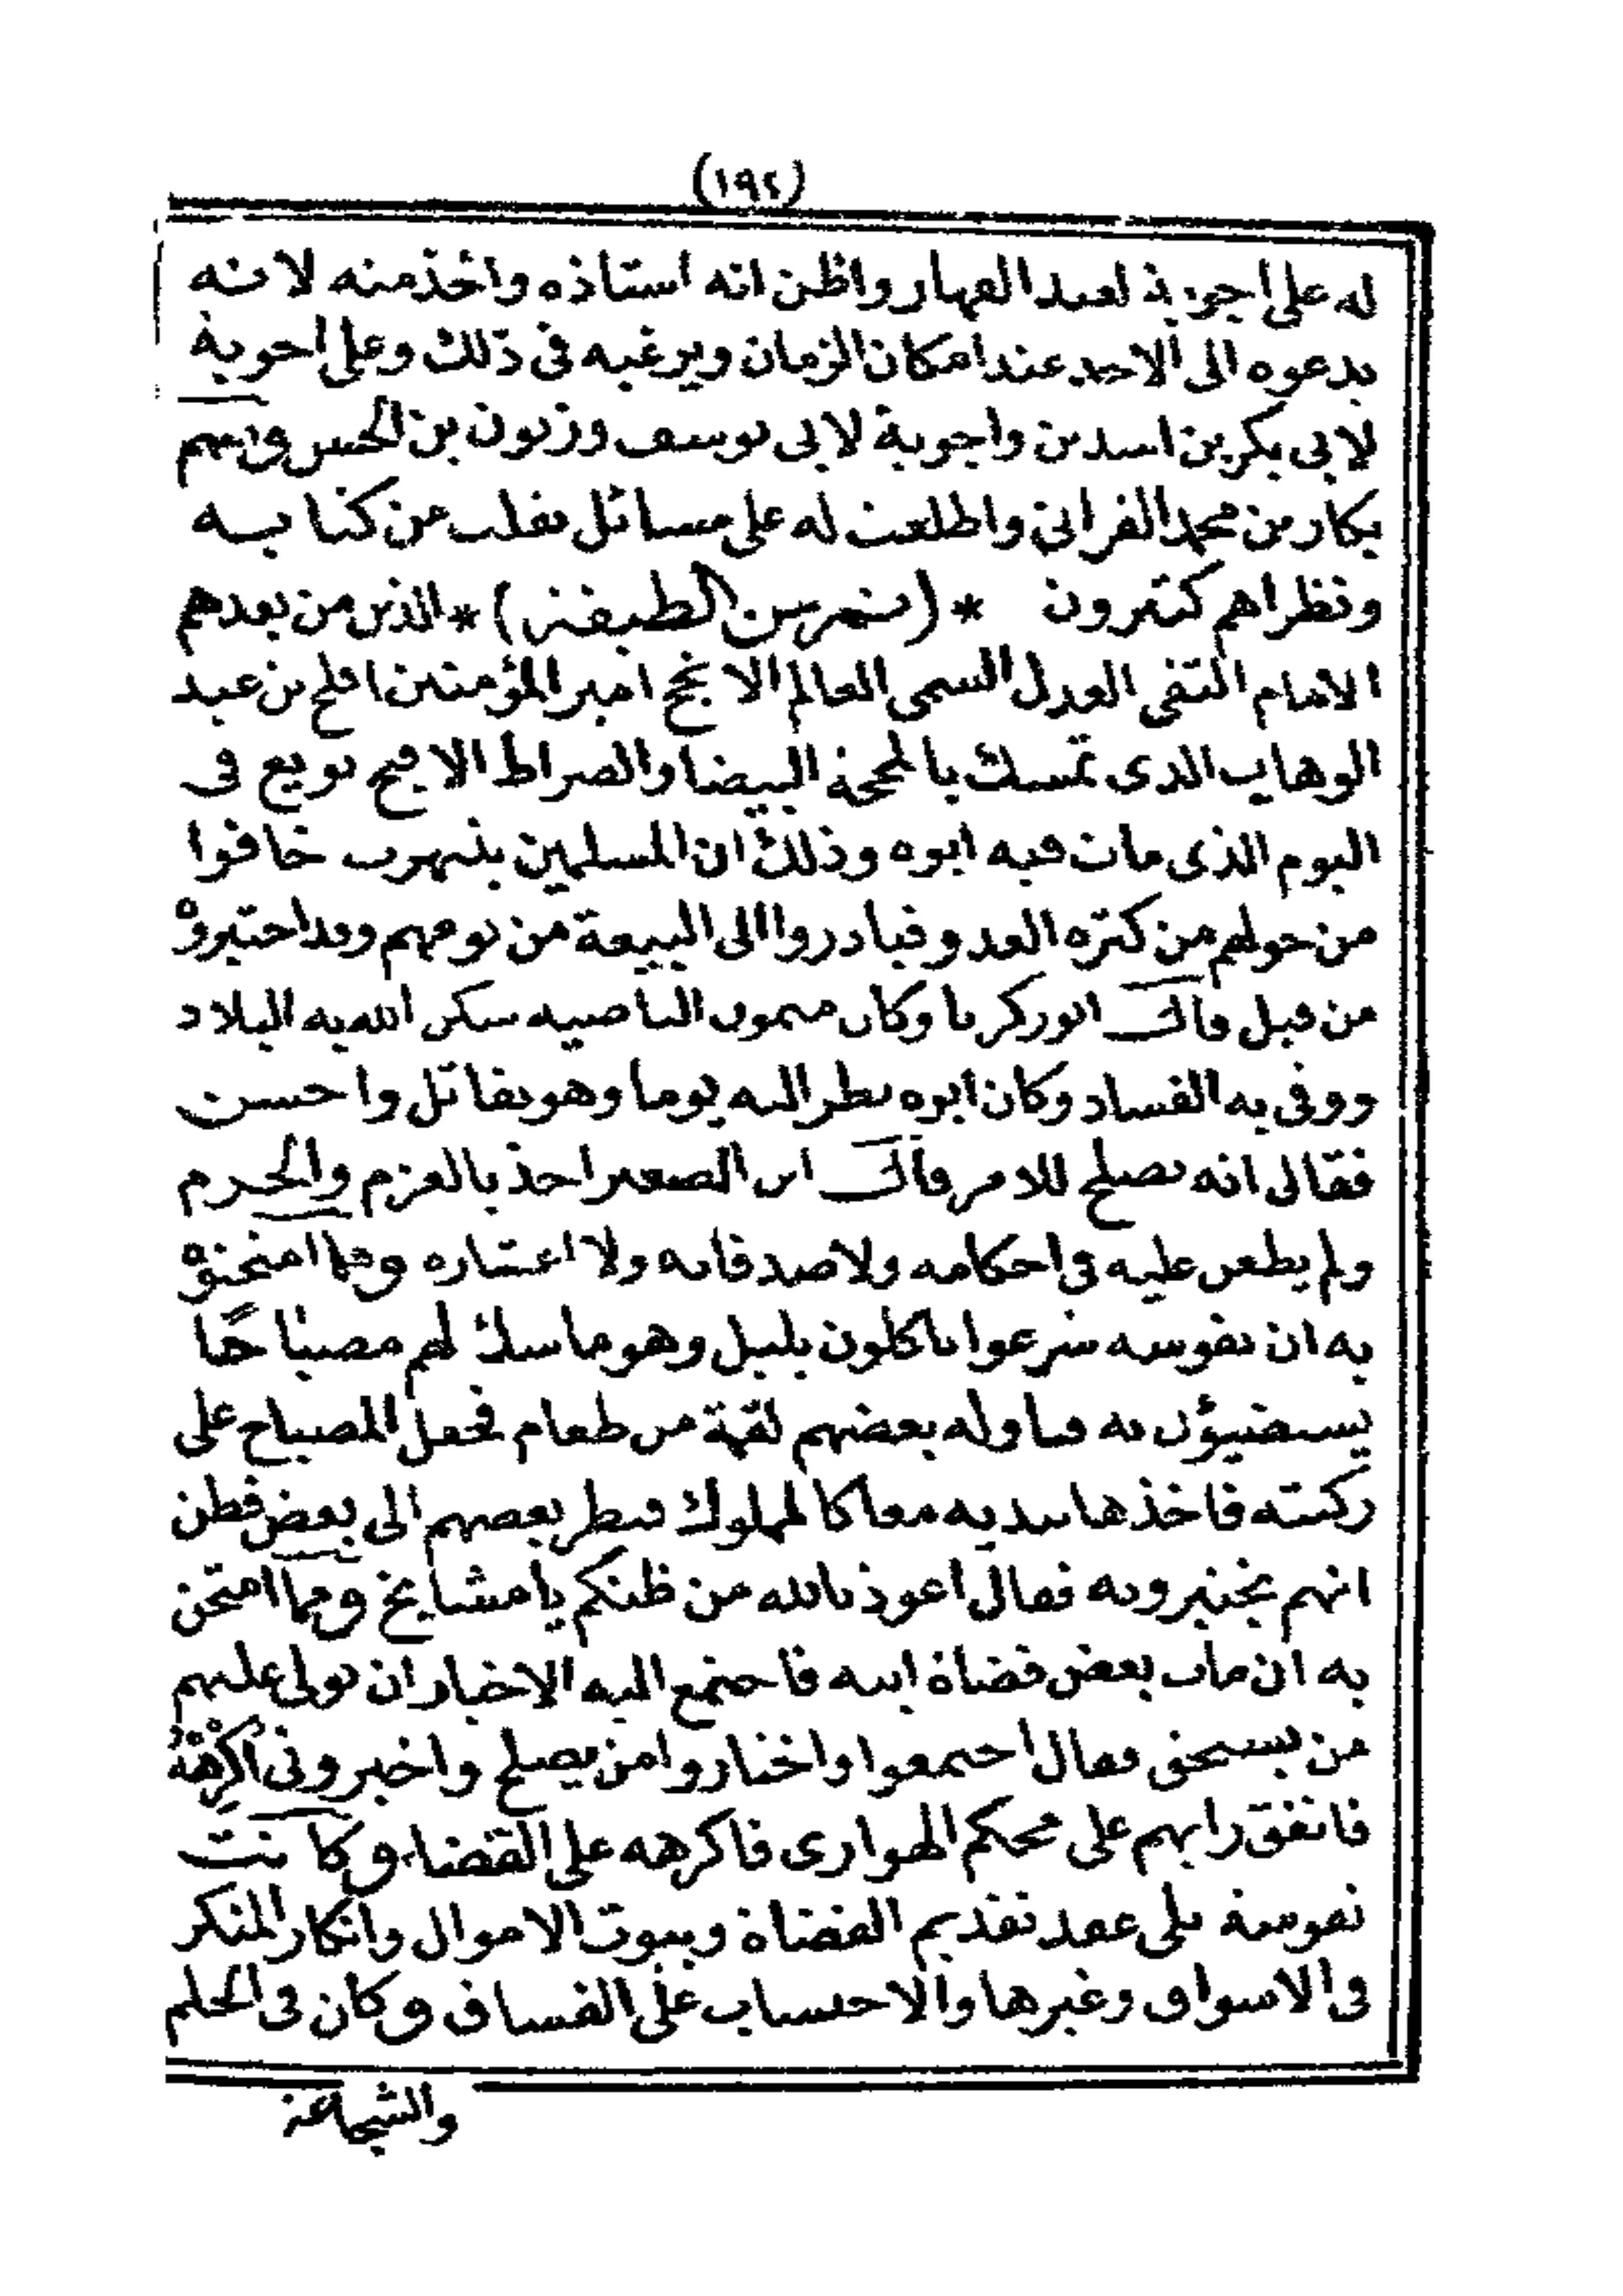 (١٩٢)
له على اجوبة لعبد القهار واظن انه استاذه واخذ منه لانه
يدعوه الى الاحد عند امكان الزمان ويرغبه فى ذلك وعلى اجوبة
لابى بكر بن اسدين واجوبة لابى يوسف وزنون بن الحسن ومنهم
بكار بن محمد الفزانى واطلعت له على مسائل نقلت من كتابه
ونظراهم كثيرون * ( الطبقة ) * الذين من بعدهم
الامام التقى العدل السمى العالم الانجح امير المؤمنين افلح بن عبد
الوهاب الذى تمسك بالمحجة البيضا والصراط الافيح بويع فى
اليوم الذى مات فيه ابوه وذلك ان المسلمين بتيهرت خافوا
من حولهم من كثرة العدو فبادروا الى البيعة من يومهم وقد اختبروه
من قبل قال ابو زكريا وكان ميمون الناصيه سكن الله به البلاد
ووقى به الفساد وكان ابوه نظر اليه يوما وهو يقاتل واحسن
فقال انه يصلح للامر وقال ابن الصغير اخذ بالعزم والحزم
ولم يطعن عليه فى احكامه ولا صدقاته ولا اعشاره ومما امتحنوه
به ان نفوسه شرعوا ياكلون بليل وهو ماسك لهم مصباحًا
يستضيؤن به فناوله بعضهم لقمة من طعام فجعل المصباح على
ركبته فاخذها بيديه معا كالمملوك فنظر بعضهم الى بعض فظن
انهم يختبرونه فقال اعوذ بالله من ظنكم يا مشايخ ومما امتحن
به ان مات بعض قضاة ابيه فاجتمع اليه الاخيار ان يولى عليهم
من يستحق فقال اجتمعوا واختاروا من يصلح واخبرونى اُكْرِهْهُ
فاتفق رايهم على محكم الهوارى فاكرهه على القضاء وكانت
نفوسة تلى عقد تقديم القضاة وبيوت الاموال وانكار المنكر
فى الاسواق وغيرها والاحتساب على الفساق وكان فى الحلم
والشجاعة